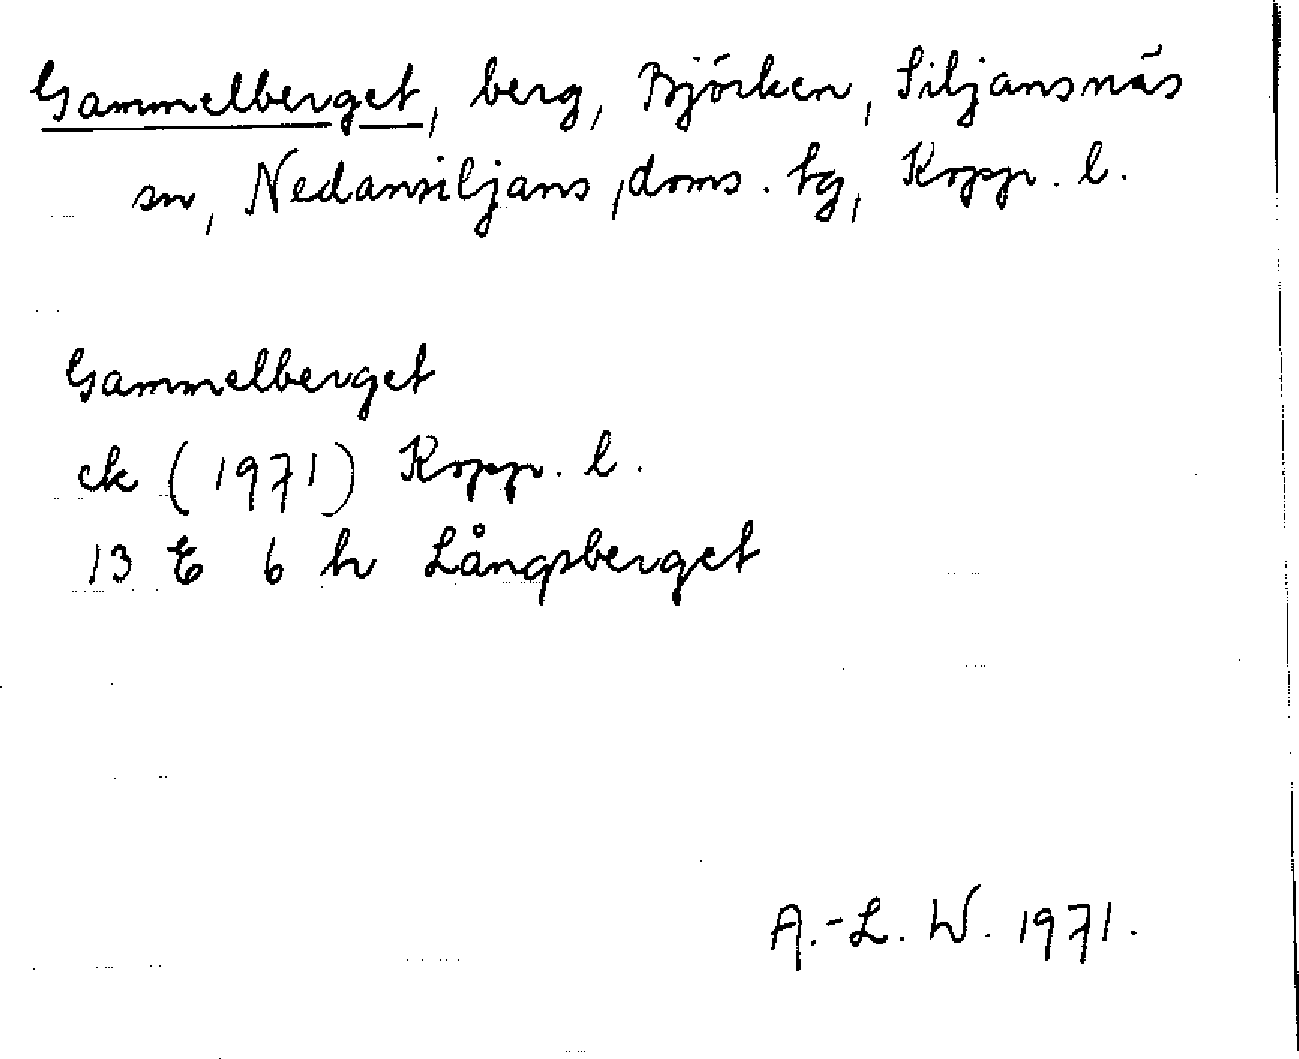 Gammelberget, berg, Björken, Siljansnäs
sn, Nedansiljans, doms. tg, Kopp. l.
Gammelberget
ek (1971) Kopp. l.
13 E 6 h Långsberget
A.-L. W. 1971.